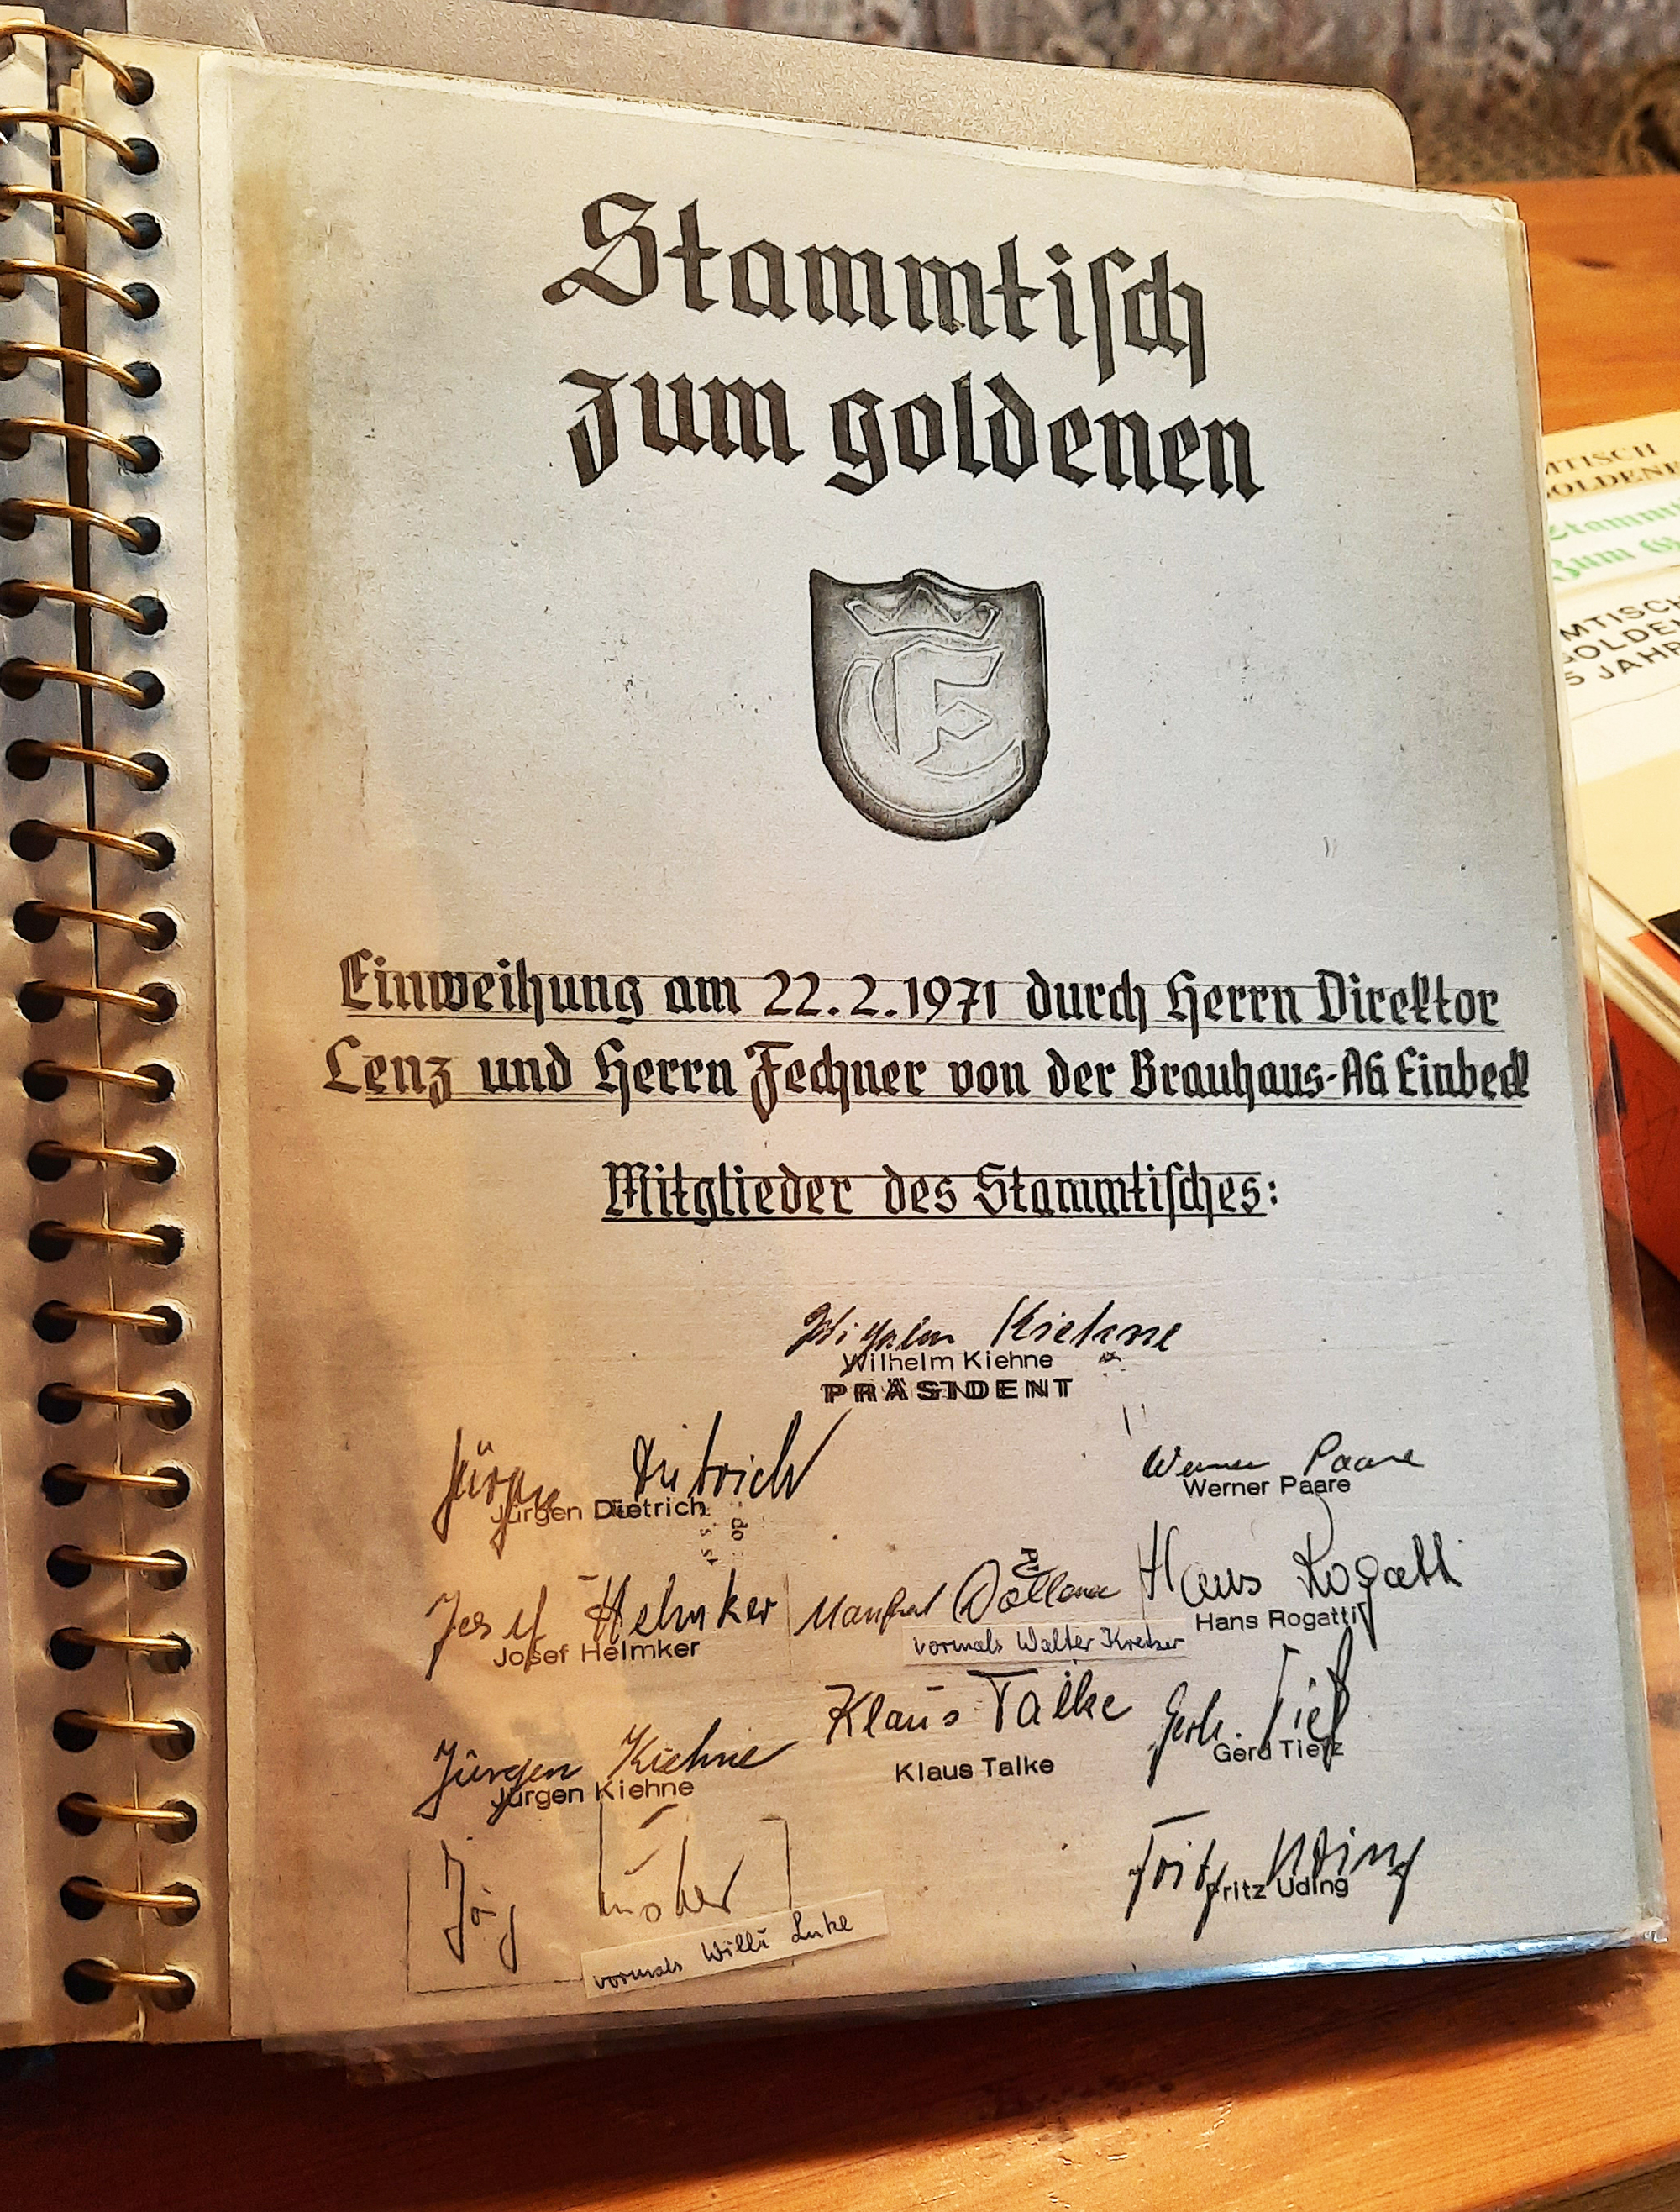 Stammtiſch
zum goldenen
E
Einweihung am 22.2.1971 durch Herrn Direktor
Lenz und Herrn Fechner von der Brauhaus-AG Einbeck
Mitglieder des Stammtiſches:
Wilhelm Kiehne
Wilhelm Kiehne
PRÄSIDENT
Jürgen Dietrich
Jürgen Dietrich
Werner Paare
Werner Paare
Josef Helmker
Josef Helmker
Manfred
vormals Walter Kretzer
Hans Rogatti
Hans Rogatti
Jürgen Kiehne
Jürgen Kiehne
Klaus Talke
Klaus Talke
Gerd Tietz
Gerd Tietz
Jörg
vormals Willi Luke
Fritz Uding
Fritz Uding
MTISCH
OLDENE
Stamm
Zum G
MTISCH
GOLDEN
5 JAHR